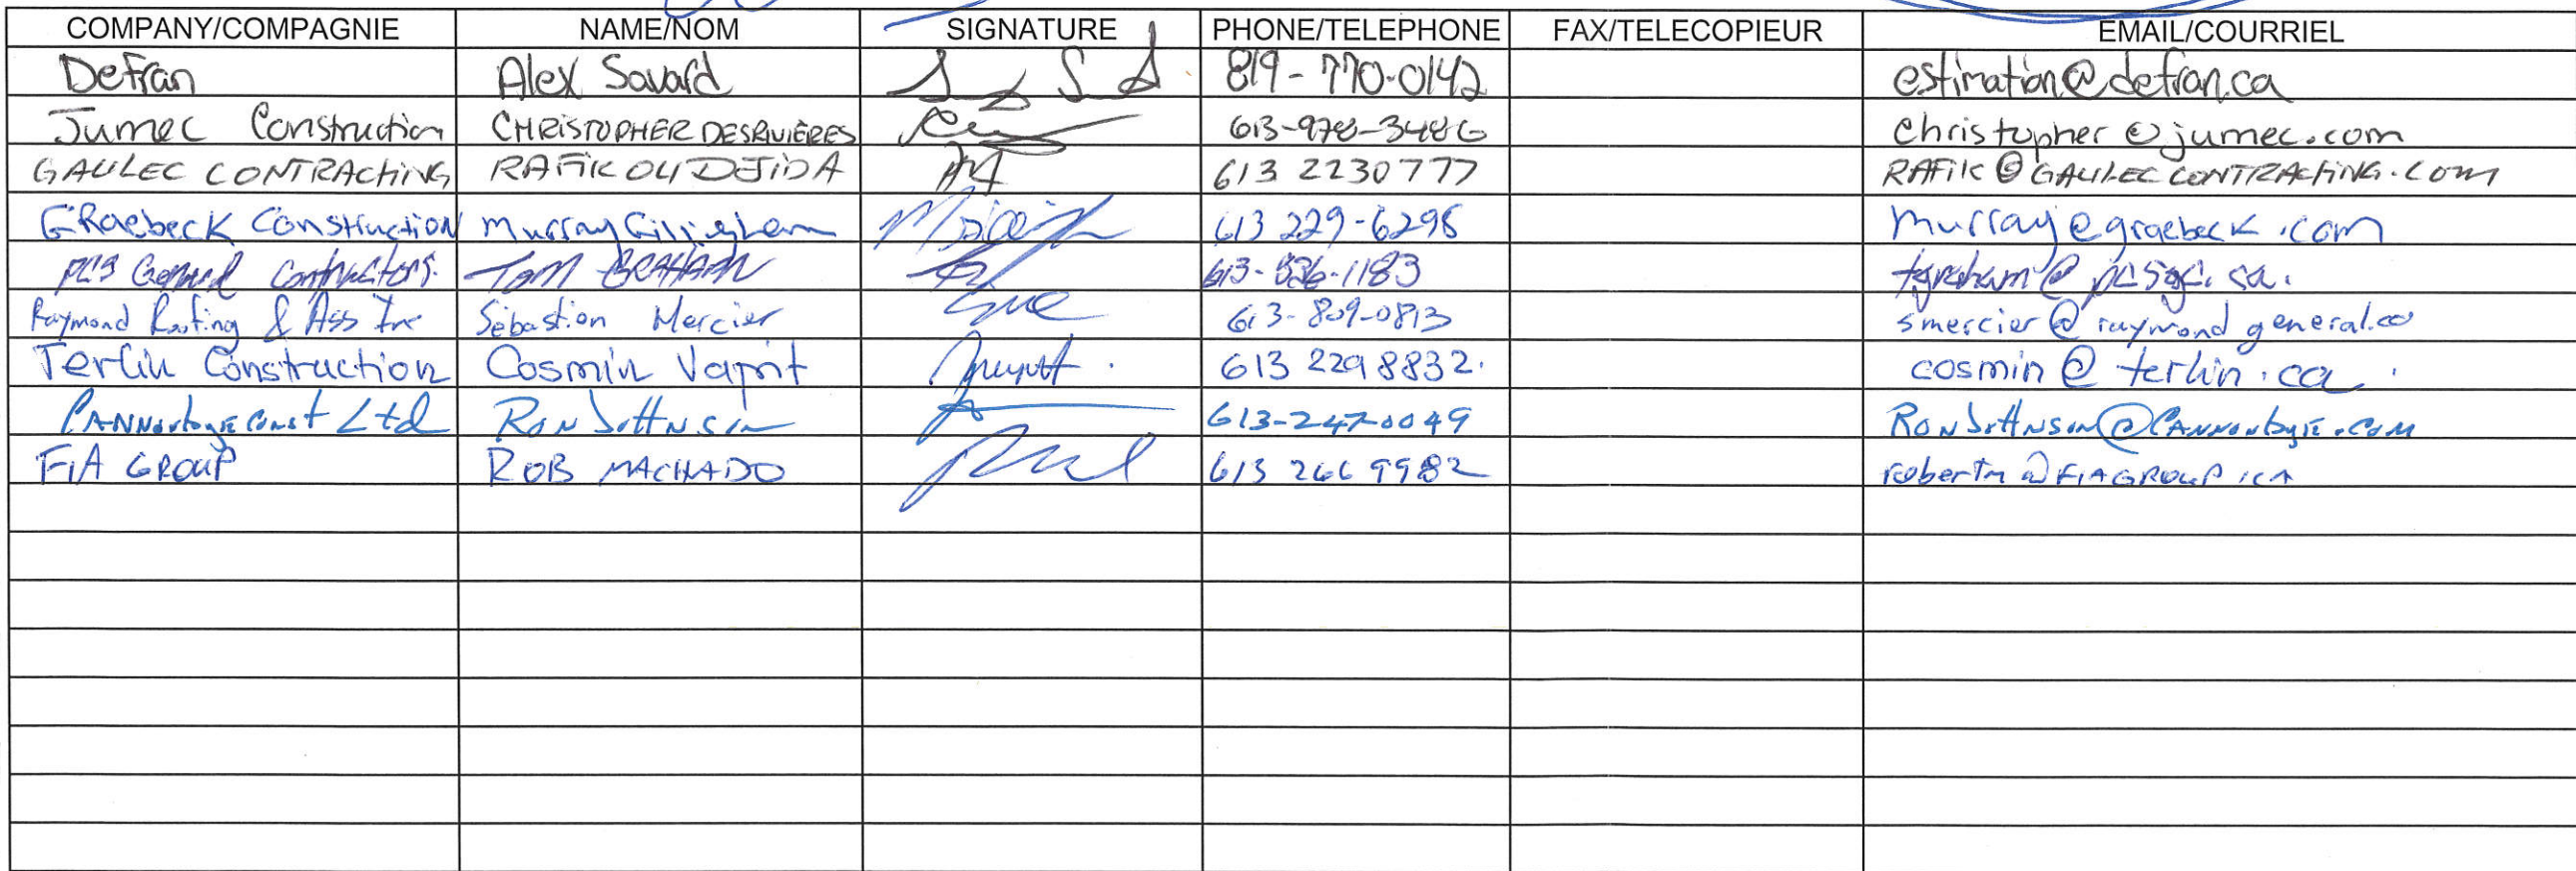 COMPANY/COMPAGNIE NAME/NOM SIGNATURE PHONE/TELEPHONE FAX/TELECOPIEUR EMAIL/COURRIEL
Defran Alex Savard 819-770-0142 estimation@defran.ca
Jumec Construction CHRISTOPHER DESRIVIÈRES 613-978-3486 christopher@jumec.com
GAULEC CONTRACTING RAFIK OULDJIDA 613 2230777 RAFIK@GAULECCONTRACTING.COM
GRaebeck Construction Murray Gillingham 613 229-6298 murray@graebeck.com
PCS General Contractors. Tom GRAHAM tgraham@pcsgc.ca.
Raymond Roofing & Ass Inc Sebastien Mercier 613-809-0813 smercier@raymondgeneral.ca
Terlin Construction Cosmin 613 229 8832. cosmin@terlin.ca.
Const Ltd RON JOHNSON 613-247-0049
FIA GROUP ROB MACHADO 613 266 9982 robertm@FIAGROUP.CA